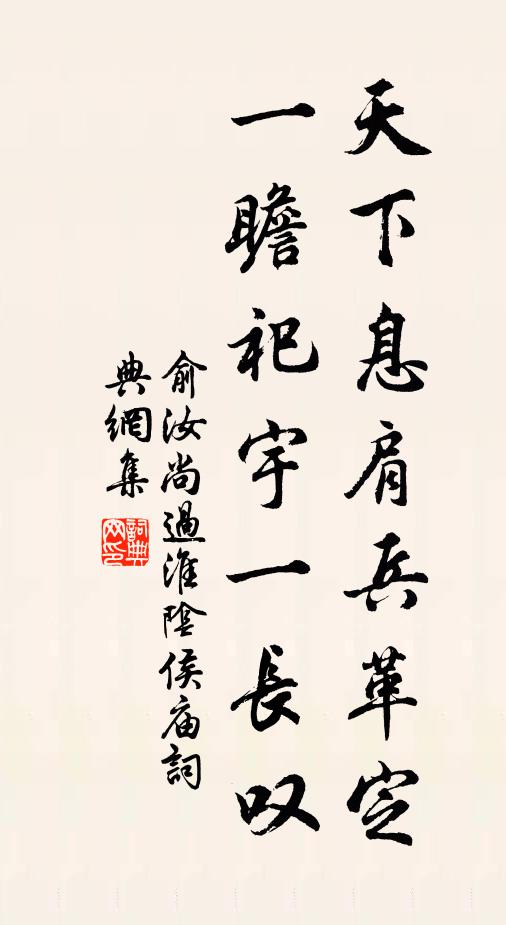 天下息肩兵革定
一瞻祀宇一長叹
俞汝尚過淮陰侯庙詞
典網集
詞典网印